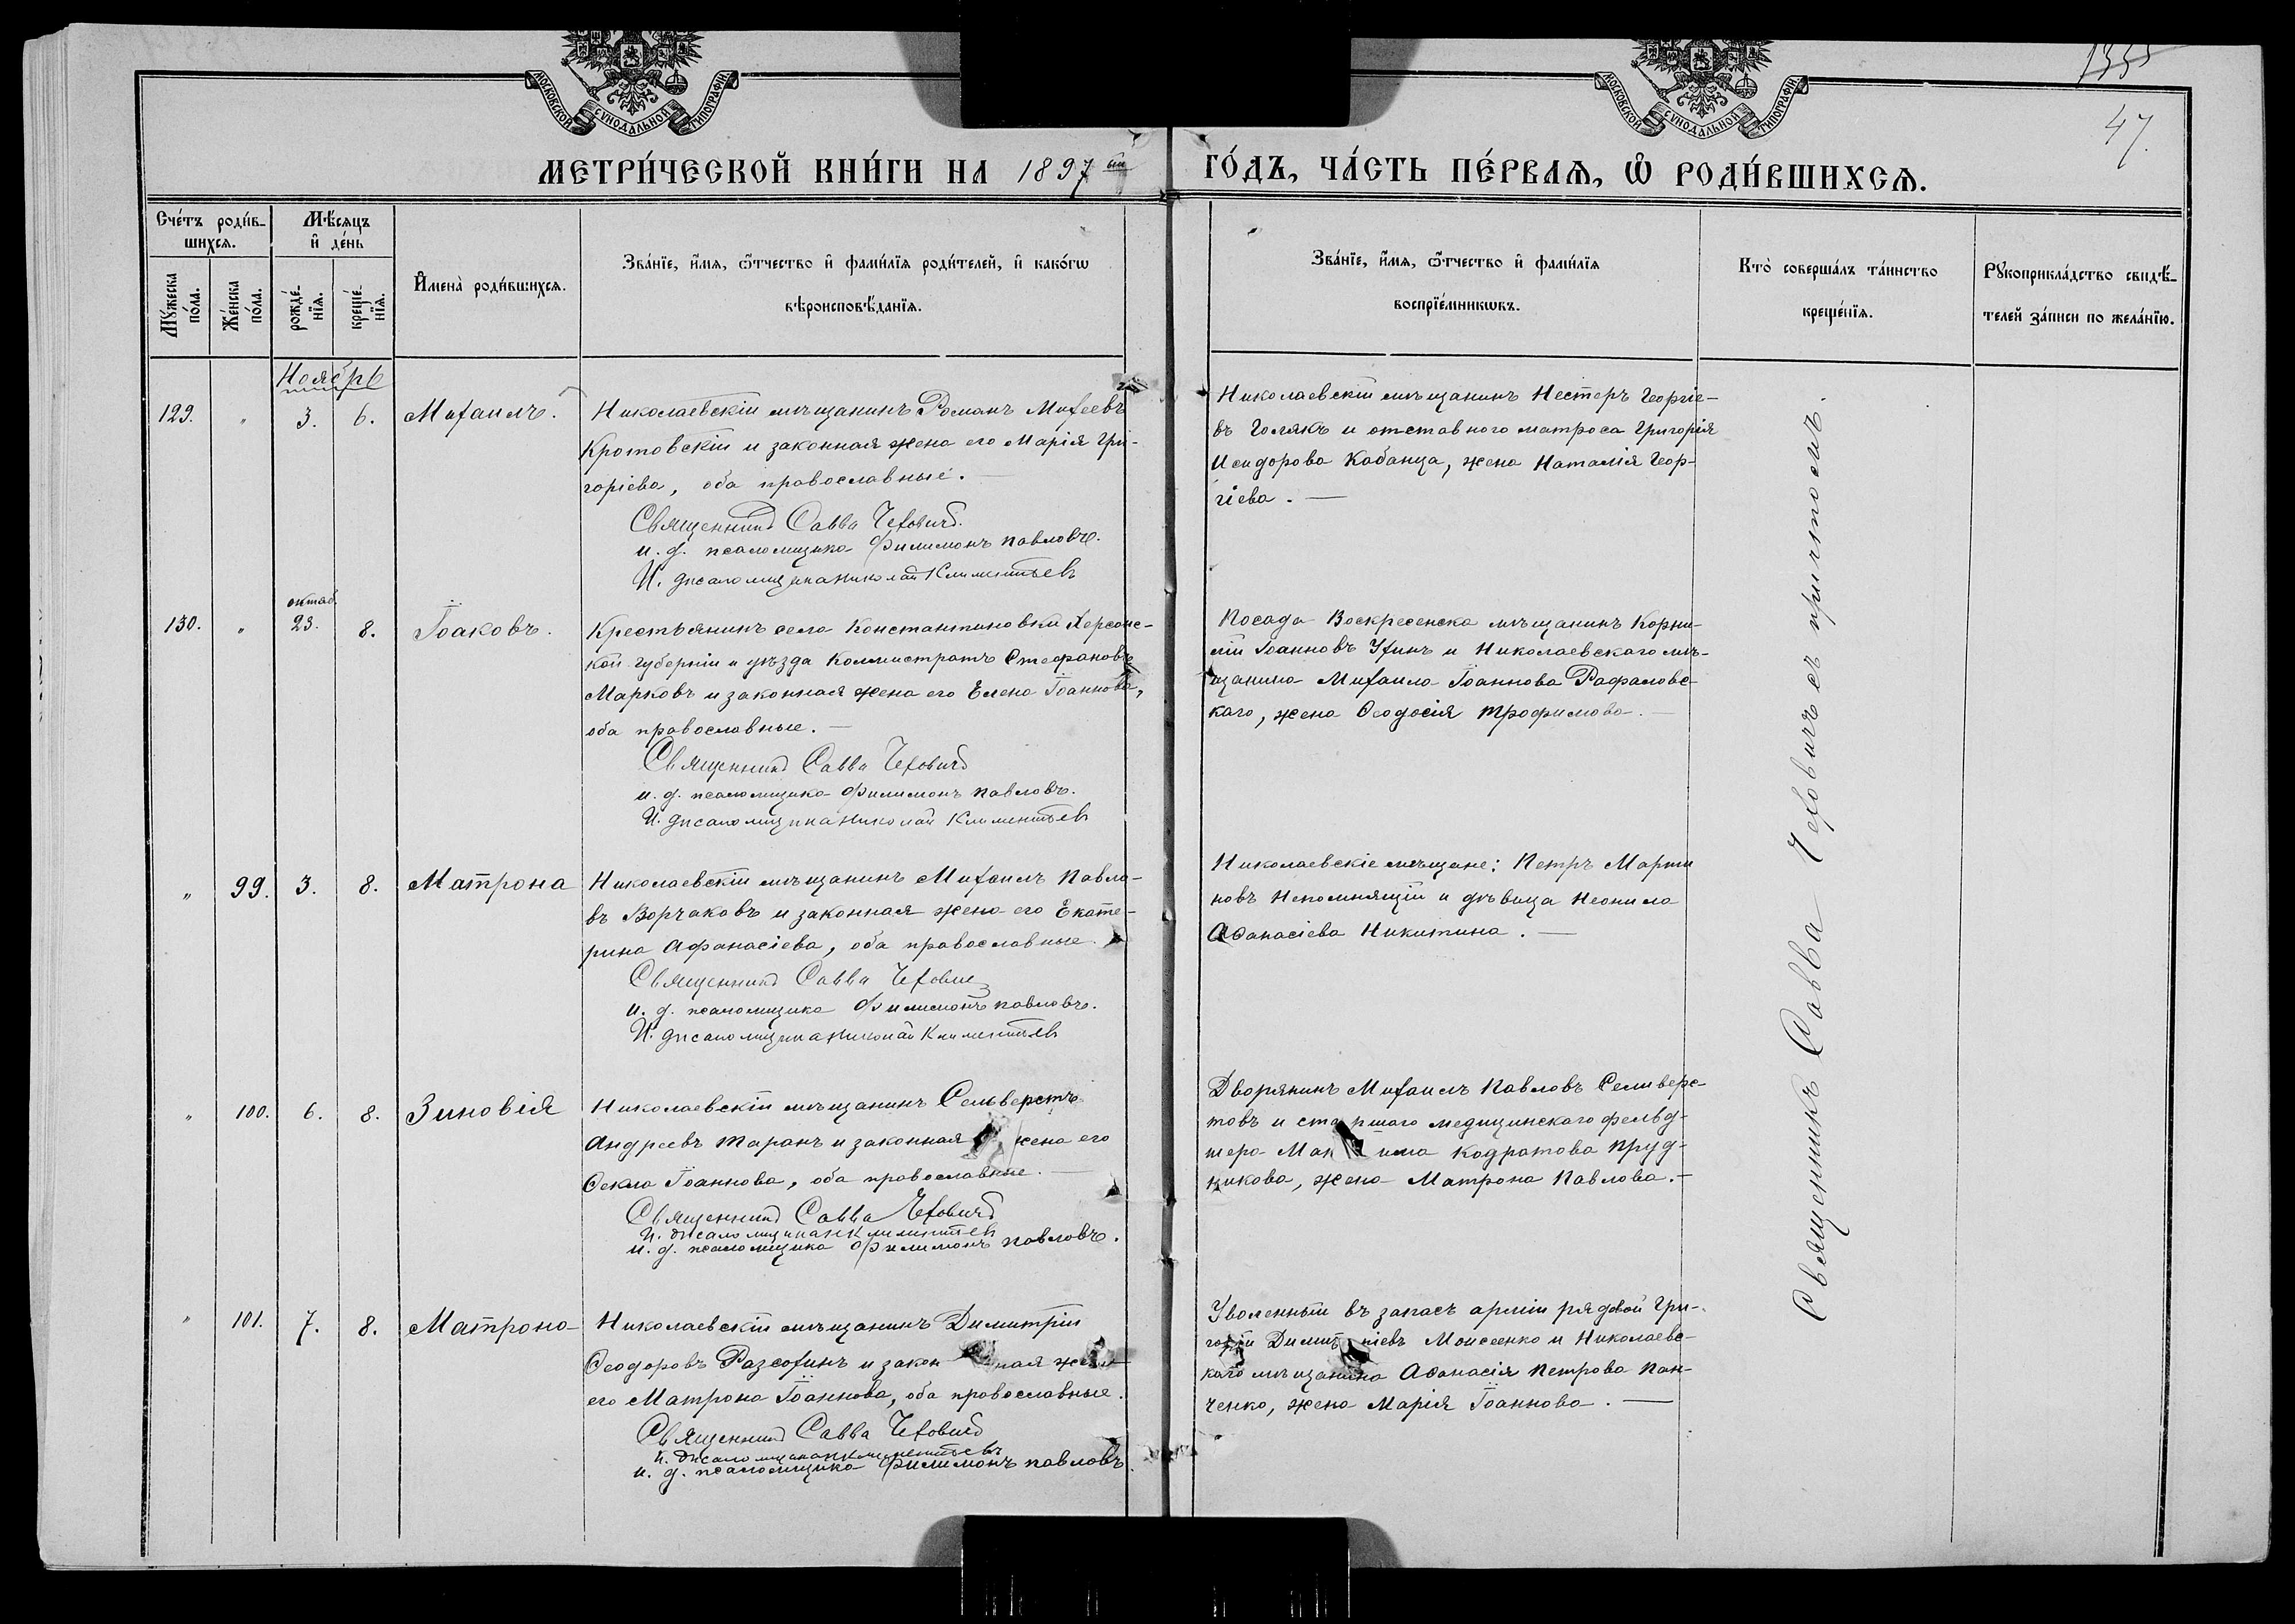 МОСКОВСКОЙ СѴНОДАЛЬНОЙ ТИПОГРАФІИ.
МОСКОВСКОЙ СѴНОДАЛЬНОЙ ТИПОГРАФІИ.
1335
47.
МЕТРИ́ЧЕСКОЙ КНИ́ГИ НА 1897 ый ГО́ДЪ, ЧА́СТЬ ПЕ́РВАѦ, Ѡ҆ РОДИ́ВШИХСѦ.
Сче́тъ роди́в-
шихсѧ.
Мѣ́сяцъ
и҆ де́нь
Мꙋ́жеска
по́ла.
Же́нска
по́ла.
рожде́-
нїѧ.
креще́-
нїѧ.
И҆мена̀ роди́вшихсѧ.
Зва́нїе, и҆́мѧ, ѻ҆́тчество и҆ фами́лїѧ роди́телей, и҆ како́гѡ
вѣроисповѣ́данїѧ.
Зва́нїе, и҆́мѧ, ѻ҆́тчество и҆ фами́лїѧ
воспрїе́мникѡвъ.
Кто̀ соверша́лъ та́инство
креще́нїѧ.
Рꙋкоприкла́дство свидѣ́-
телей за́писи по жела́нїю.
Ноябрь
129. " 3. 6. Михаилъ.
Николаевскій мѣщанинъ Романъ Михеевъ
Кротовскій и законная жена его Марія Гри-
горіева, оба православные.
Священникъ Савва Чеховичъ.
и. д. псаломщика Филимонъ Павловъ.
И. д псаломщика Николай Климентьевъ
Николаевскій мѣщанинъ Нестеръ Георгіе-
въ Голякъ и отставного матроса Григорія
Исидорова Кабанца, жена Наталія Геор-
гіева.
октяб.
130. " 23. 8. Іоаковъ.
Крестьянинъ села Константиновки Херсонс-
кой губерніи и уѣзда Каллистратъ Стефановъ
Марковъ и законная жена его Елена Іоаннова,
оба православные.
Священникъ Савва Чеховичъ
и. д. псаломщика Филимонъ Павловъ.
И. д псаломщика Николай Климентьевъ
Посада Воскресенска мѣщанинъ Корни-
лій Іоанновъ Ухинъ и Николаевскаго мѣ-
щанина Михаила Іоаннова Рафаловс-
каго, жена Ѳеодосія Трофимова.
" 99. 3. 8. Матрона
Николаевскій мѣщанинъ Михаилъ Павло-
въ Ворчаковъ и законная жена его Екате-
рина Афанасіева, оба православные.
Священникъ Савва Чехович
и. д. псаломщика Филимонъ Павловъ.
И. д псаломщика Николай Климентьевъ
Николаевскіе мѣщане: Петръ Марти
новъ Непомнящій и дѣвица Неонила
Аѳанасіева Никитина.
" 100. 6. 8. Зиновія
Николаевскій мѣщанинъ Сельверстъ
Андреевъ Таранъ и законная жена его
Ѳекла Іоаннова, оба православные.
Священникъ Савва Чеховичъ
И. д псаломщика Н Климентьев
и. д. псаломщика Филимонъ Павловъ.
Дворянинъ Михаилъ Павловъ Селиверс-
товъ и старшаго медицинскаго фельд-
шера Максима Кодратова Пруд-
никова, жена Матрона Павлова.
" 101. 7. 8. Матрона
Николаевскій мѣщанинъ Димитрій
Ѳеодоровъ Разсохинъ и законная жена
его Матрона Іоаннова, оба православные.
Священникъ Савва Чеховичъ
И. д псаломщика Н Климентьевъ
и. д. псаломщика Филимонъ Павловъ
Уволенный въ запасъ арміи рядовой Гри-
горій Димитріевъ Моисеенко и Николаевс-
каго мѣщанина Аѳанасія Петрова Пан-
ченко, жена Марія Іоаннова.
Священникъ Савва Чеховичъ съ причтомъ.